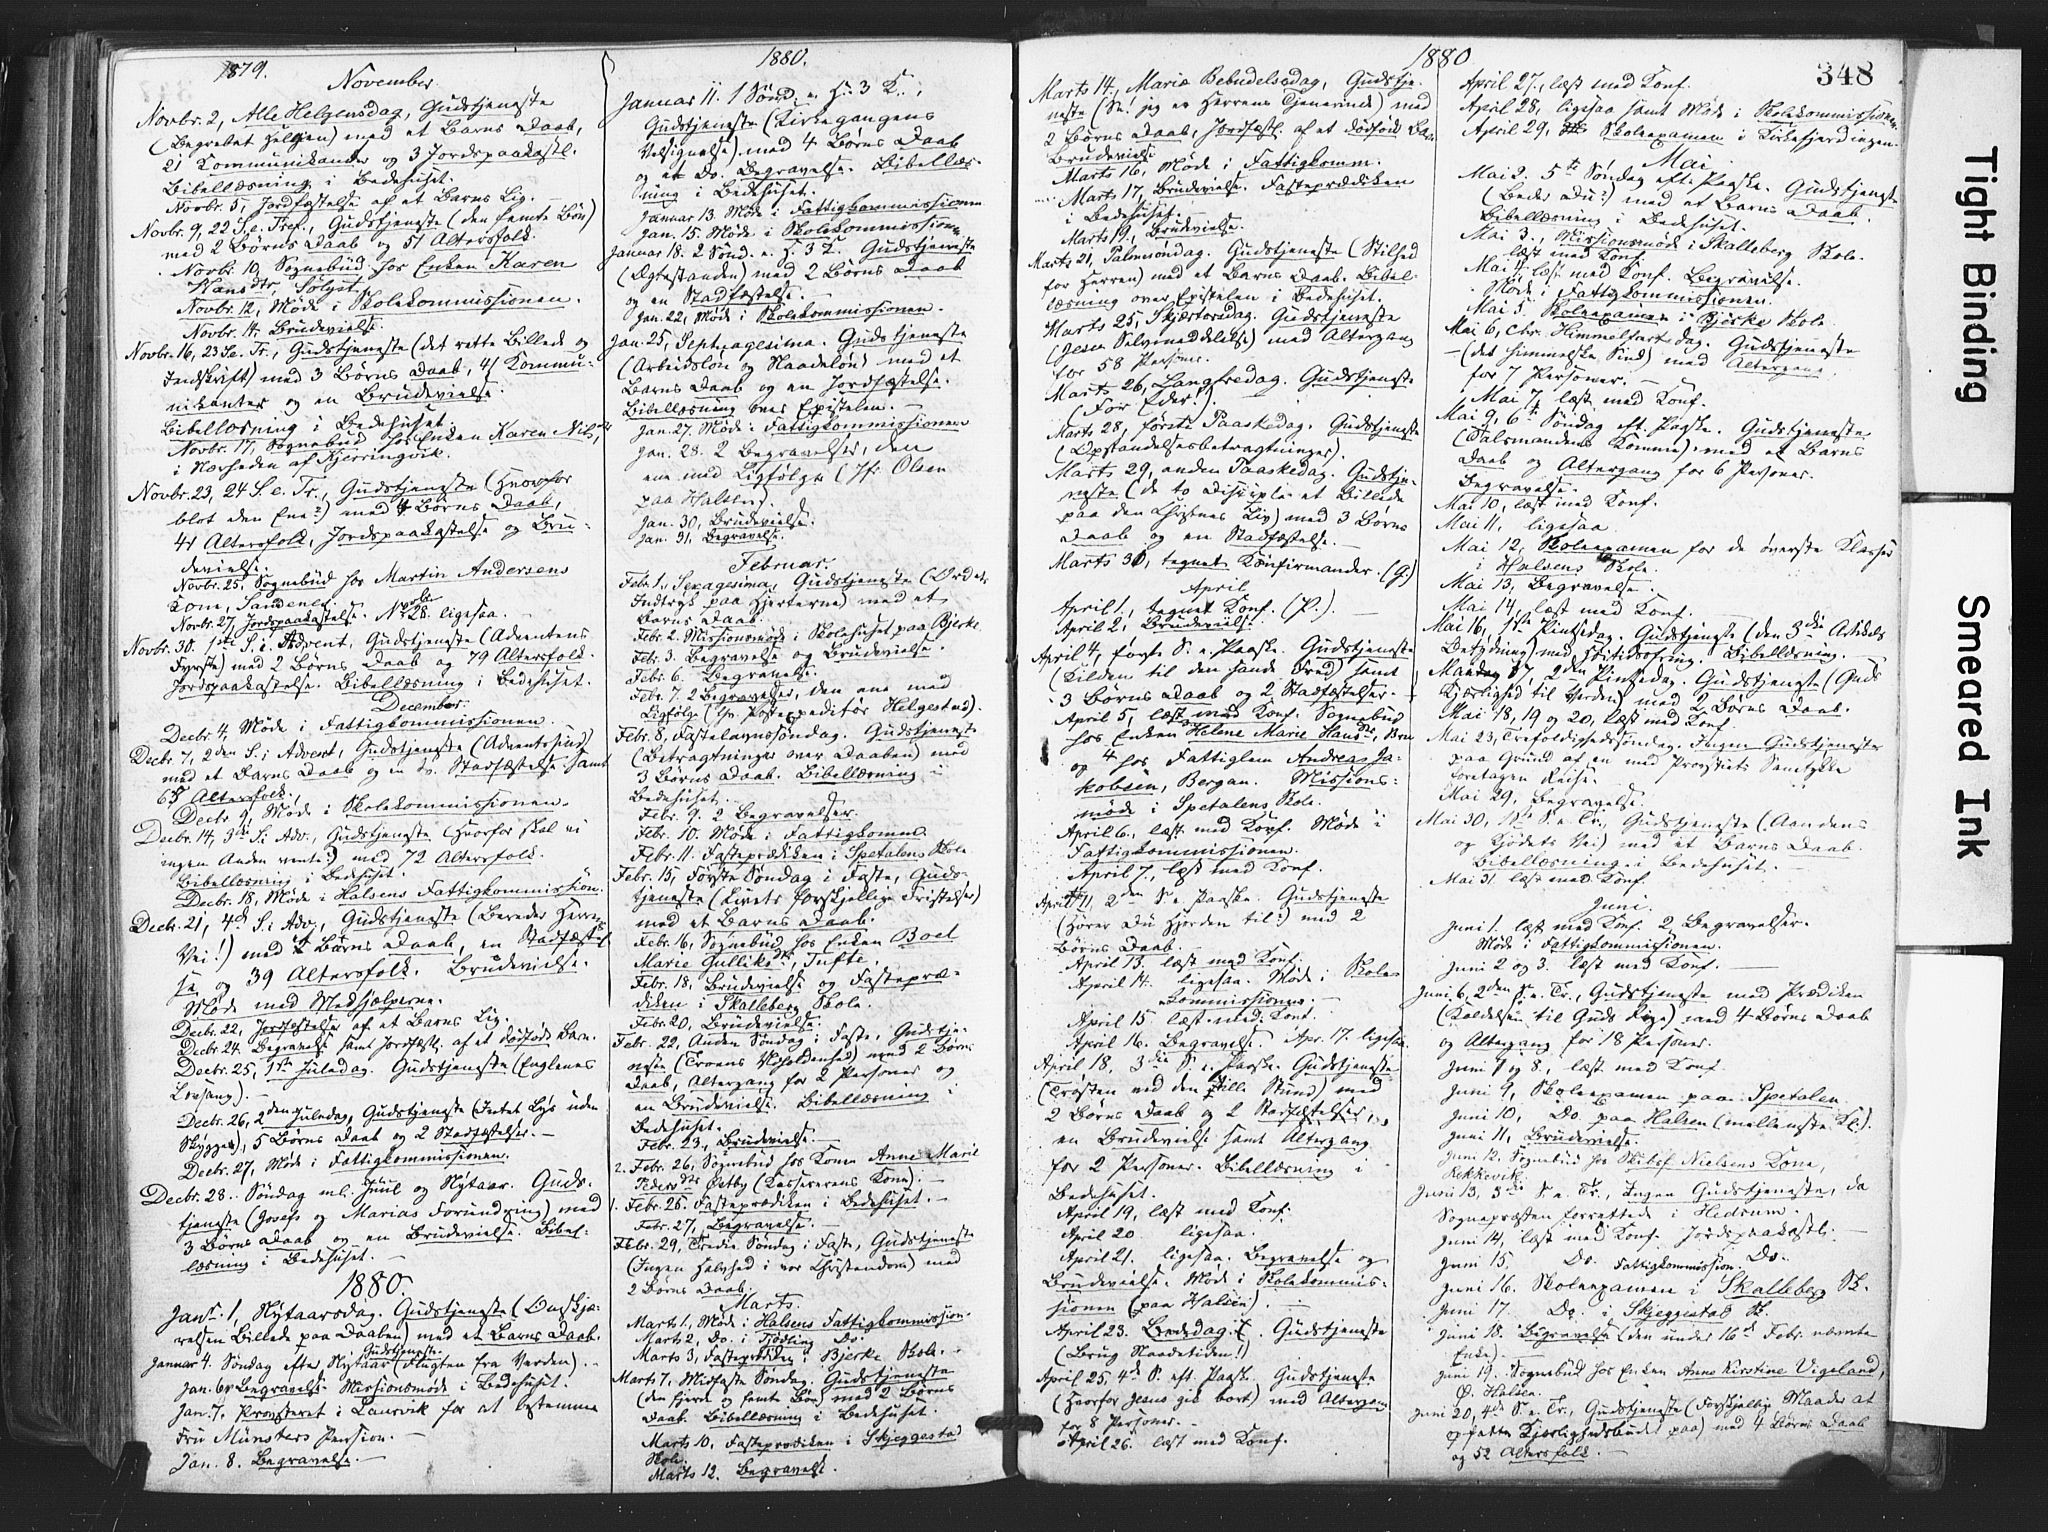 1879.
November.
Novbr. 2, Alle Helgensdag, Gudstjeneste
(Begrebet Helgen) med et Barns Daab,
21 Kommunikander og 3 Jordspaakastl.
Bibellæsning i Bedehuset.
Novbr. 5, Jordfæstelse af et Barns Lig.
Novbr. 9, 22 S. e. Tref., Gudstjeneste (den femte Bøn)
med 2 Børns Daab og 51 Altersfolk.
Novbr. 10 Sognebud hos Enken Karen
Hansdtr, Sølyst.
Novbr. 12, Møde i Skolekommissionen.
Novbr. 14 Brudevielse.
Novbr. 16, 23 S. e. Tr., Gudstjeneste (det rette Billede og
Indskrift) med 3 Børns Daab, 41 Kommu-
nikanter og en Brudevielse.
Bibellæsning i Bedehuset.
Novbr. 17, Sognebud hos Enken Karen Nilsdtr
i Nærheden af Kjerringvik.
Novbr. 23, 24 S. e. Tr., Gudstjeneste (Hvorfor
blot den Ene?) med 4 Børns Daab,
41 Altersfolk, Jordspaakastelse og Bru-
devielse.
Novbr. 25, Sognebud hos Martin Andersens
Kone, Sanden.
Novbr. 27, Jordspaakastelse. Novbr 28. ligesaa.
Novbr. 30. 1ste S. i Advent, Gudstjeneste (Adventens
Fyrste) med 2 Børns Daab og 79 Altersfolk.
Jordspaakastelse. Bibellæsning i Bedehuset.
December.
Decbr. 4, Møde i Fattigkommissionen.
Decbr. 7, 2den S. i Advent, Gudstjeneste (Adventssind)
med et Barns Daab og en Dv. Stadfæstelse samt
65 Altersfolk.
Decbr 9, Møde i Skolekommissionen.
Decbr. 14, 3die S. i Adv., Gudstjeneste (Hvorfor skal vi
ingen Anden vente?) med 72 Altersfolk.
Bibellæsning i Bedehuset.
Decbr. 18, Møde i Halsens Fattigkommission.
Decbr. 21, 4de S. i Adv., Gudstjeneste (Bereder Herrens
Vei!) med Børns Daab, en Stadfæstel-
se og 39 Altersfolk. Brudevielse.
Møde med Medhjælperne.
Decbr. 22, Jordfæstelse af et Barns Lig.
Decbr. 24. Begravelse samt Jordfæstl. af et dødfødt Barn.
Decbr. 25, 1ste Juledag. Gudstjeneste (Englenes
Lovsang).
Decbr. 26, 2den Juledag, Gudstjeneste (Intet Lys uden
Skygge), 5 Børns Daab og 2 Stadfæstelser.
Decbr. 27, Møde i Fattigkommissionen.
Decbr. 28. Søndag ml. Juul og Nytaar. Guds-
tjeneste (Josefs og Marias Forundring) med
3 Børns Daab og en Brudevielse. Bibel-
læsning i Bedehuset.
1880.
Janr. 1, Nytaarsdag. Gudstjeneste (Omskjæ-
relsen Billede paa Daaben) med et Barns Daab.
Januar 4. Søndag efter Nytaar Gudstjeneste (Flugten fra Verden).
Jan. 6 Begravelse. Missionsmøde i Bedehuset.
Jan. 7. Provsteret i Laurvik for at bestemme
Fru Münsters Pension.
Jan. 8. Begravelse.
1880.
Januar 11. 1 Sønd. e. H. 3 K.,
Gudstjeneste (Kirkegangens
Velsignelse) med 4 Børns Daab
og en Do. Begravelse. Bibellæs-
ning i Bedehuset.
Januar 13. Møde i Fattigkommissionen
Jan. 15. Møde i Skolekommissionen
Januar 18. 2 Sønd. e. H. 3 K. Gudstjeneste
(Ægtestanden) med 2 Børns Daab
og en Stadfæstelse.
Jan. 22, Møde i Skolekommissionen.
Jan. 25, Septuagesima. Gudstjeneste
(Arbeidsløn og Naadeløn) med et
Barns Daab og en Jordfæstelse.
Bibellæsning over Epistelen.
Jan. 27. Møde i Fattigkommissionen
Jan. 28. 2 Begravelser, den
ene med Ligfølge (Jfr Olsen
paa Halsen).
Jan. 30, Brudevielse.
Jan. 31, Begravelse.
Februar.
Febr. 1, Sexagesima, Gudstjeneste (Ordets
Indtryk paa Hjerterne) med et
Barns Daab.
Febr. 2. Missionsmøde i Skolehuset paa Bjerke.
Febr. 3. Begravelse og Brudevielse.
Febr. 6. Begravelse.
Febr. 7. 2 Begravelser, den ene med
Ligfølge (Hr. Postexpeditør Helgestad).
Febr. 8, Fastelavnssøndag. Gudstjeneste
(Betragtninger over Daaben) med
3 Børns Daab. Bibellæsning i
Bedehuset.
Febr. 9. 2 Begravelser.
Febr. 10. Møde i Fattigkomm.
Febr. 11. Fasteprædiken i Spetalens Skole
Febr. 15, Første Søndag i Faste, Guds-
tjeneste (Livets forskjellige Fristelser)
med et Barns Daab.
Febr. 16, Sognebud hos Enken Boel
Marie Gulliksdtr, Tufte.
Febr. 18, Brudevielse og Fastepræ-
diken i Skalleberg Skole.
Febr. 20, Brudevielse.
Febr. 22, Anden Søndag i Faste, Gudstje-
neste (Troens Udholdenhed) med 2 Børns
Daab, Altergang for 2 Personer og
en Brudevielse. Bibellæsning i
Bedehuset.
Febr. 23, Brudevielse.
2. Febr. 26, Sognebud hos Kone Anne Marie
Pedersdtr Østby (Kassererens Kone).
1. Febr. 25. Fasteprædiken i Bedehuset.
Febr. 27, Begravelse.
Febr. 29, Tredie Søndag i Faste, Gudstjeneste
(Ingen Halvhed i vor Christendom) med
2 Børns Daab.
Marts.
Marts 1, Møde i Halsens Fattigkommission.
Marts 2, Do. i Tjødling Do.
Marts 3, Fasteprædiken i Bjerke Skole.
Marts 7. Midfaste Søndag. Gudstjeneste
(den fjerde og femte Bøn) med 2 Børns
Daab. Bibellæsning i Bedehuset.
Marts 10, Fasteprædiken i Skjeggestad
Skole.
Marts 12. Begravelse.
1880
Marts 14, Mariæ Bebudelsesdag, Gudstje-
neste (Se! jeg er Herrens Tjenerinde) med
2 Børns Daab, Jordfæstl. af et dødfødt Barn
Brudevielse
Marts 16, Møde i Fattigkomm.
Marts 17, Brudevielse. Fasteprædiken
i Bedehuset.
Marts 19, Brudevielse.
Marts 21, Palmsøndag. Gudstjeneste (Stilhed
for Herren) med et Barns Daab. Bibel-
læsning over Epistelen i Bedehuset.
Marts 25, Skjærtorsdag. Gudstjeneste
(Jesu Selvmeddelelse) med Altergang
for 58 Personer.
Marts 26, Langfredag. Gudstjeneste
(For Eder!).
Marts 28, første Paaskedag. Gudstjeneste
(Opstandelsesbetragtninger).
Marts 29, anden Paaskedag. Gudstje-
neste (de to Disciple et Billede
paa den Christnes Liv) med 3 Børns
Daab og en Stadfæstelse.
Marts 31, tegnet Konfirmander. (G.)
April
April 1, tegnet Konf. (P.).
April 2, Brudevielse.
April 4, første S. e. Paaske. Gudstjeneste
(Kilden til den sande Fred) samt
3 Børns Daab og 2 Stadfæstelser.
April 5, læst med Konf. Sognebud
hos Enken Helene Marie Hansdtr,
og 4 hos Fattiglem Andreas Ja-
kobsen, Bergan. Missions-
møde i Spetalens Skole.
April 6, læst med Konf. Møde i
Fattigkommissionen.
April 7, læst med Konf.
April 11, 2den S. e Paaske. Gudstjeneste
(Hører Du Hjorden til?) med 2
Børns Daab.
April 13. læst med Konf.
April 14. ligesaa. Møde i Skole-
kommissionen.
April 15. læst med Konf.
April 16. Begravelse. Apr. 17. ligesaa
April 18, 3die S. e. Paaske. Gudstjeneste
(Trøsten ved den lille Stund) med
2 Børns Daab og 2 Stadfæstelser,
en Brudevielse samt Altergang
for 2 Personer. Bibellæsning i
Bedehuset.
April 19, læst med Konf.
April 20 ligesaa.
April 21. ligesaa. Begravelse og
Brudevielse. Møde i Skolekommis-
sionen (paa Halsen).
April 23. Bededag. Gudstjeneste
(Brug Naadetiden!)
April 25, 4de S. eft Paask. Gudstjeneste
(Hvorfor Jesus gik bort) med Altergang
for 8 Personer.
April 26. læst med Konf.
348
April 27, læst med Konf.
April 28, ligesaa samt Møde i Skolekommissionen.
April 29, Skoleexamen i Kirkefjerdingen.
Mai
Mai 2. 5te Søndag efter Paaske. Gudstjeneste
(Beder Du?) med et Barns Daab.
Bibellæsning i Bedehuset.
Mai 3., Missionsmøde i Skalleberg Skole.
læst med Konf.
Mai 4. læst med Konf. Begravelse.
Møde i Fattigkommissionen.
Mai 5. Skoleexamen i Bjerke Skole.
Mai 6, Chr. Himmelfartsdag. Gudstjeneste
(det himmelske Sind) med Altergang
for 7 Personer.
Mai 7, læst med Konf.
Mai 9, 6te Søndag eft. Paaske. Gudstjeneste
(Talsmandens Komme) med et Barns
Daab og Altergang for 6 Personer.
Begravelse.
Mai 10, læst med Konf.
Mai 11, ligesaa.
Mai 12, Skoleexamen for de øverste Klasser
i Halsens Skole.
Mai 13, Begravelse.
Mai 14, læst med Konf.
Mai 16, 1ste Pintsedag. Gudstjeneste (den 3die Artikels
Betydning) med Høitidsofring. Bibellæsning.
Mandag 17, 2den Pintsedag. Gudstjeneste (Guds
Kjærlighed til Verden) med 2 Børns Daab.
Mai 18, 19 og 20, læst med Konf.
Mai 23, Trefoldighedssøndag. Ingen Gudstjeneste
paa Grund af en med Provstiets Samtykke
foretagen Reise.
Mai 29, Begravelse.
Mai 30, 1ste S. e. Tr., Gudstjeneste (Aandens
og Kjødets Vei) med et Barns Daab.
Bibellæsning i Bedehuset.
Mai 31 læst med Konf.
Juni.
Juni 1. læst med Konf. 2 Begravelser.
Møde i Fattigkommissionen.
Juni 2 og 3. læst med Konf.
Juni 6, 2den S. e. Tr., Gudstjeneste med Prædiken
(Kaldelsen til Guds Rige) med 4 Børns Daab
og Altergang for 18 Personer.
Juni 7 og 8, læst med Konf.
Juni 9, Skoleexamen paa Spetalen.
Juni 10, Do. paa Halsen (mellemste Kl.).
Juni 11, Brudevielse.
Juni 12. Sognebud hos Skibsf Nielsens Kone,
Rekkevik.
Juni 13, 3die S. e. Tr., Ingen Gudstjeneste, da
Sognepræsten forrettede i Hedrum.
Juni 14, læst med Konf. Jordspaakastl.
Juni 15, Do. Fattigkommission. Do.
Juni 16. Skoleexamen i Skalleberg Sk.
Juni 17. Do. i Skjeggestad Sk.
Juni 18. Begravelse (den under 16de Febr. nævnte
Enke).
Juni 19. Sognebud hos Enken Anne Kirstine Vigeland,
Ø. Halsen.
Juni 20, 4de S. e. Tr., Gudstjeneste (Forskjellige Maader at
opfatte Kjærlighedsbudet paa) med 4 Børns Daab
og 52 Altersfolk.
Tight Binding
Smeared Ink